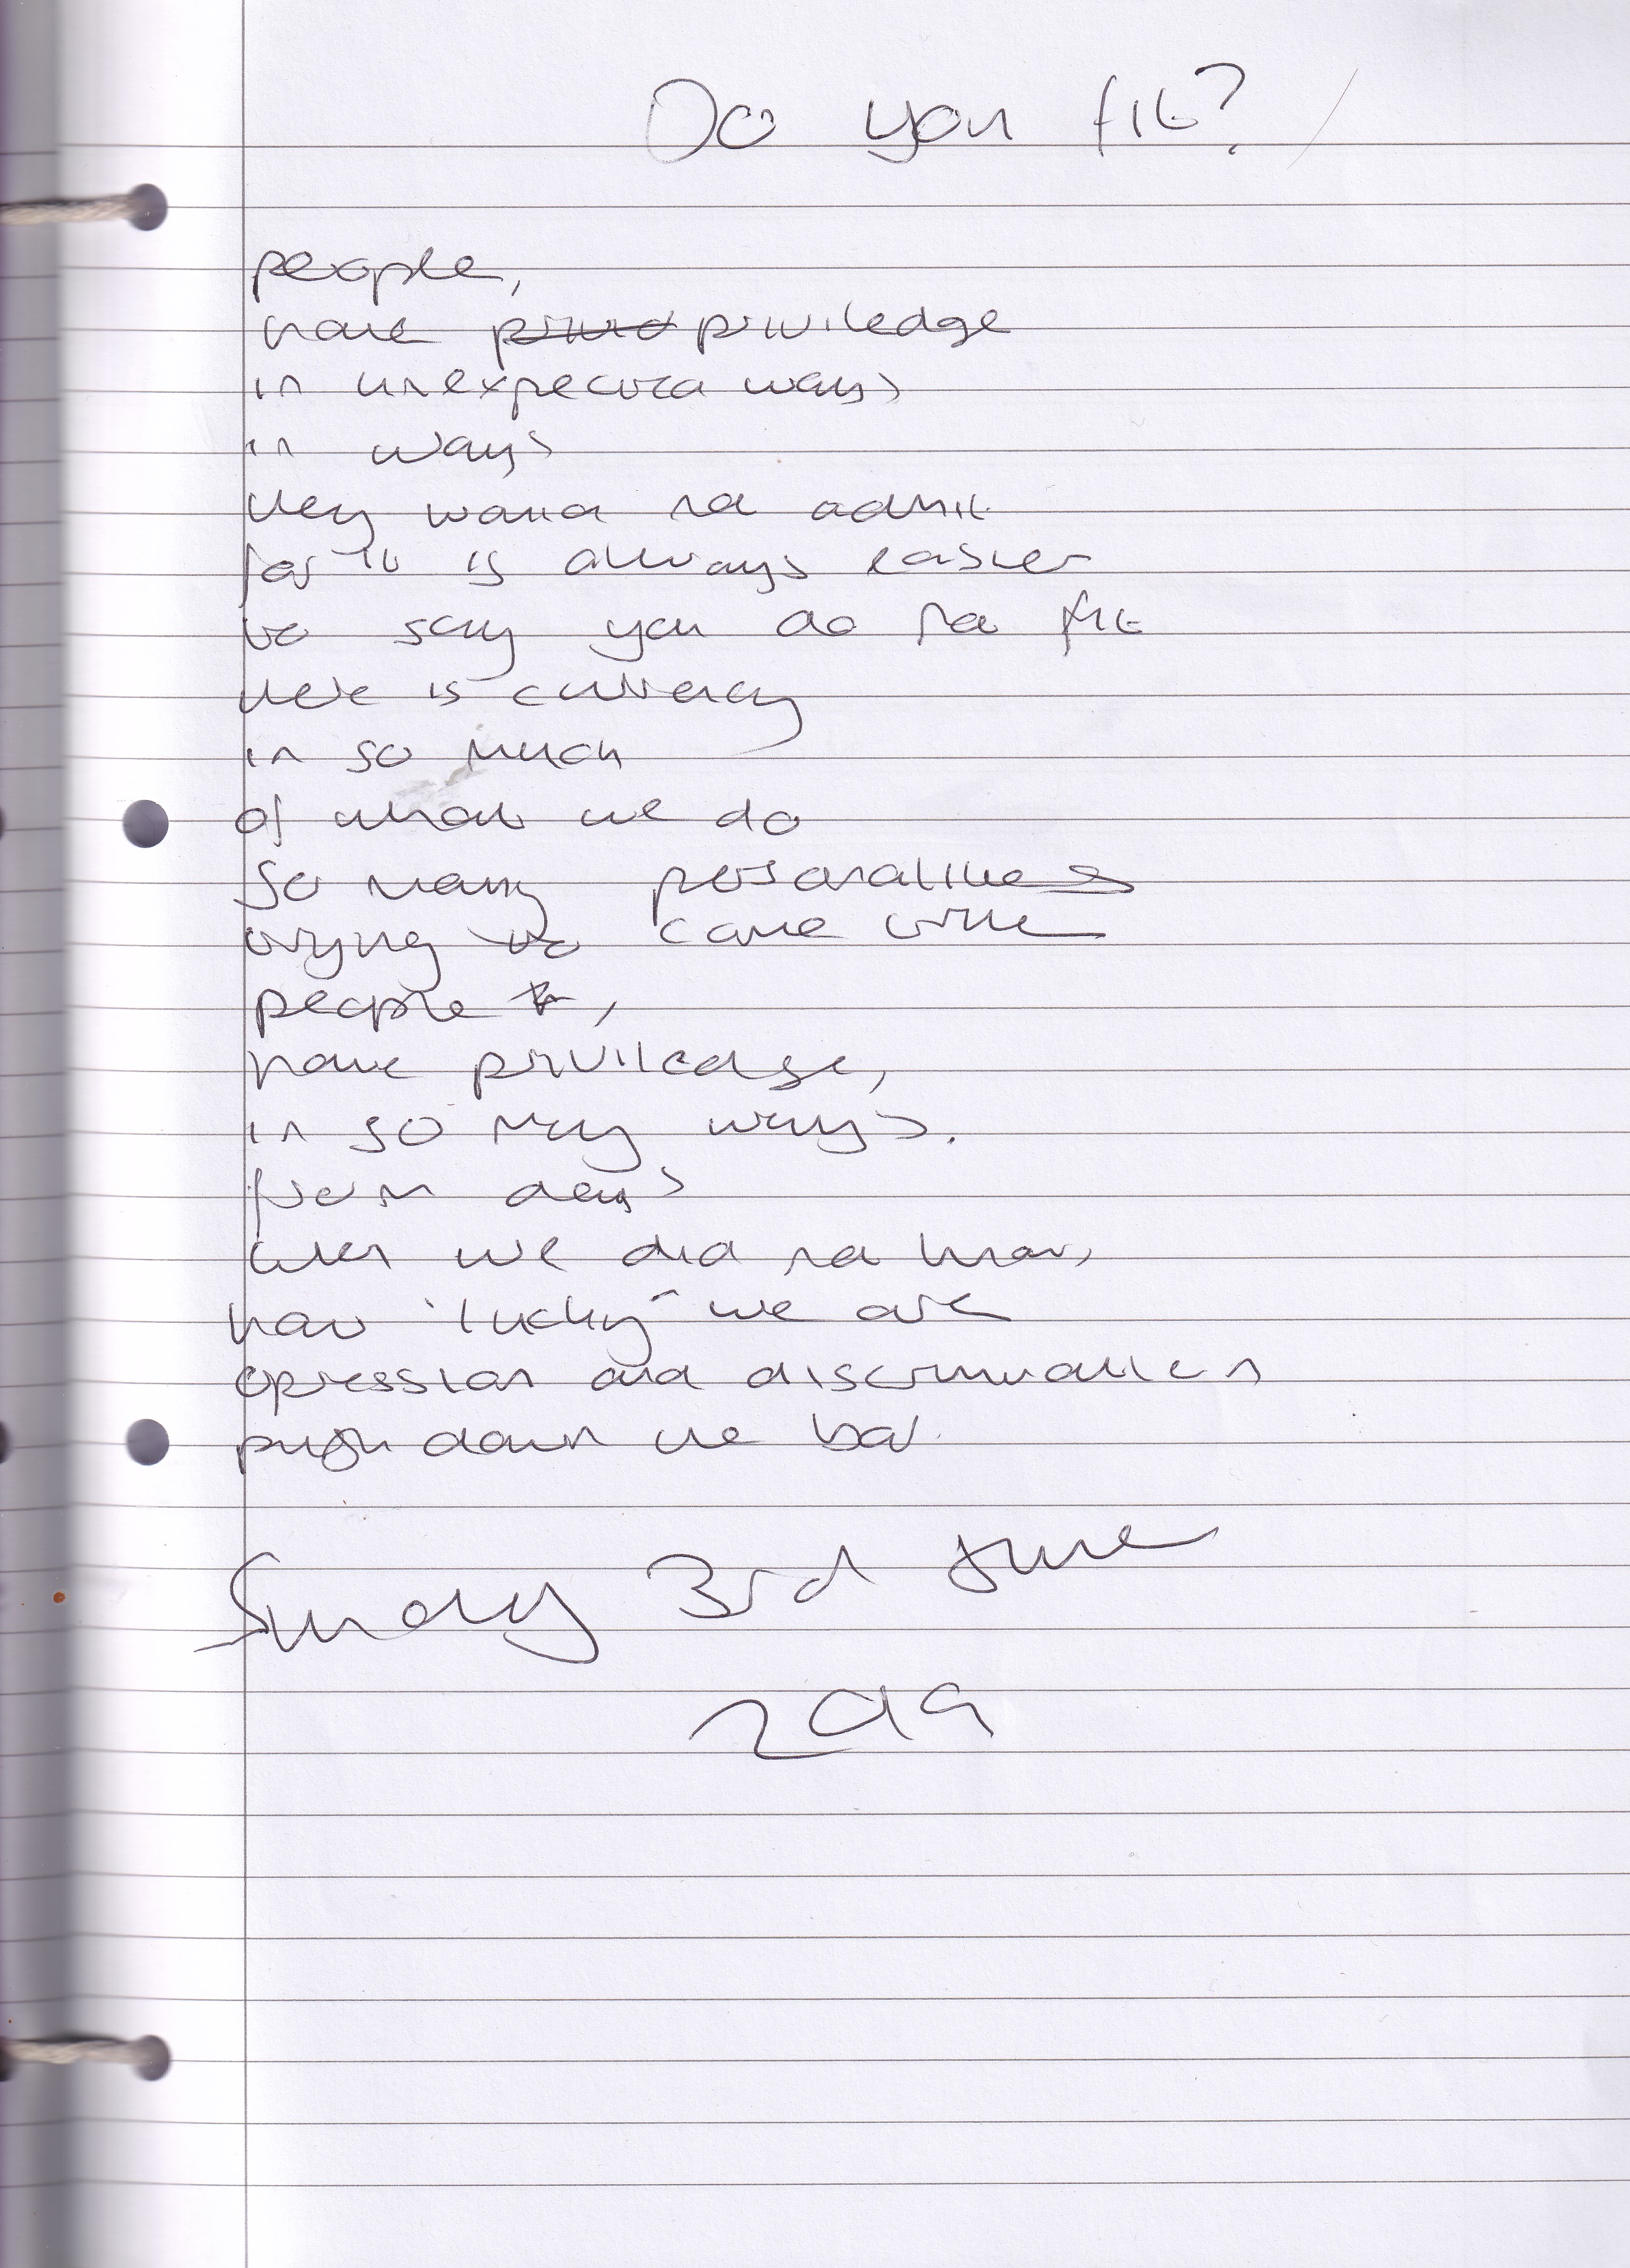 Do you fit?
people,
have priviledge
in unexpected ways
in ways
they would not admit
for it is always easier
to say you do not fit
there is currency
in so much
of what we do
So many personalities
trying to come
people,
have priviledge,
in so many ways.
from days
when we did not know,
how 'lucky' we are
opression and discrimination
push down the bar.
Sunday 3rd June
2019